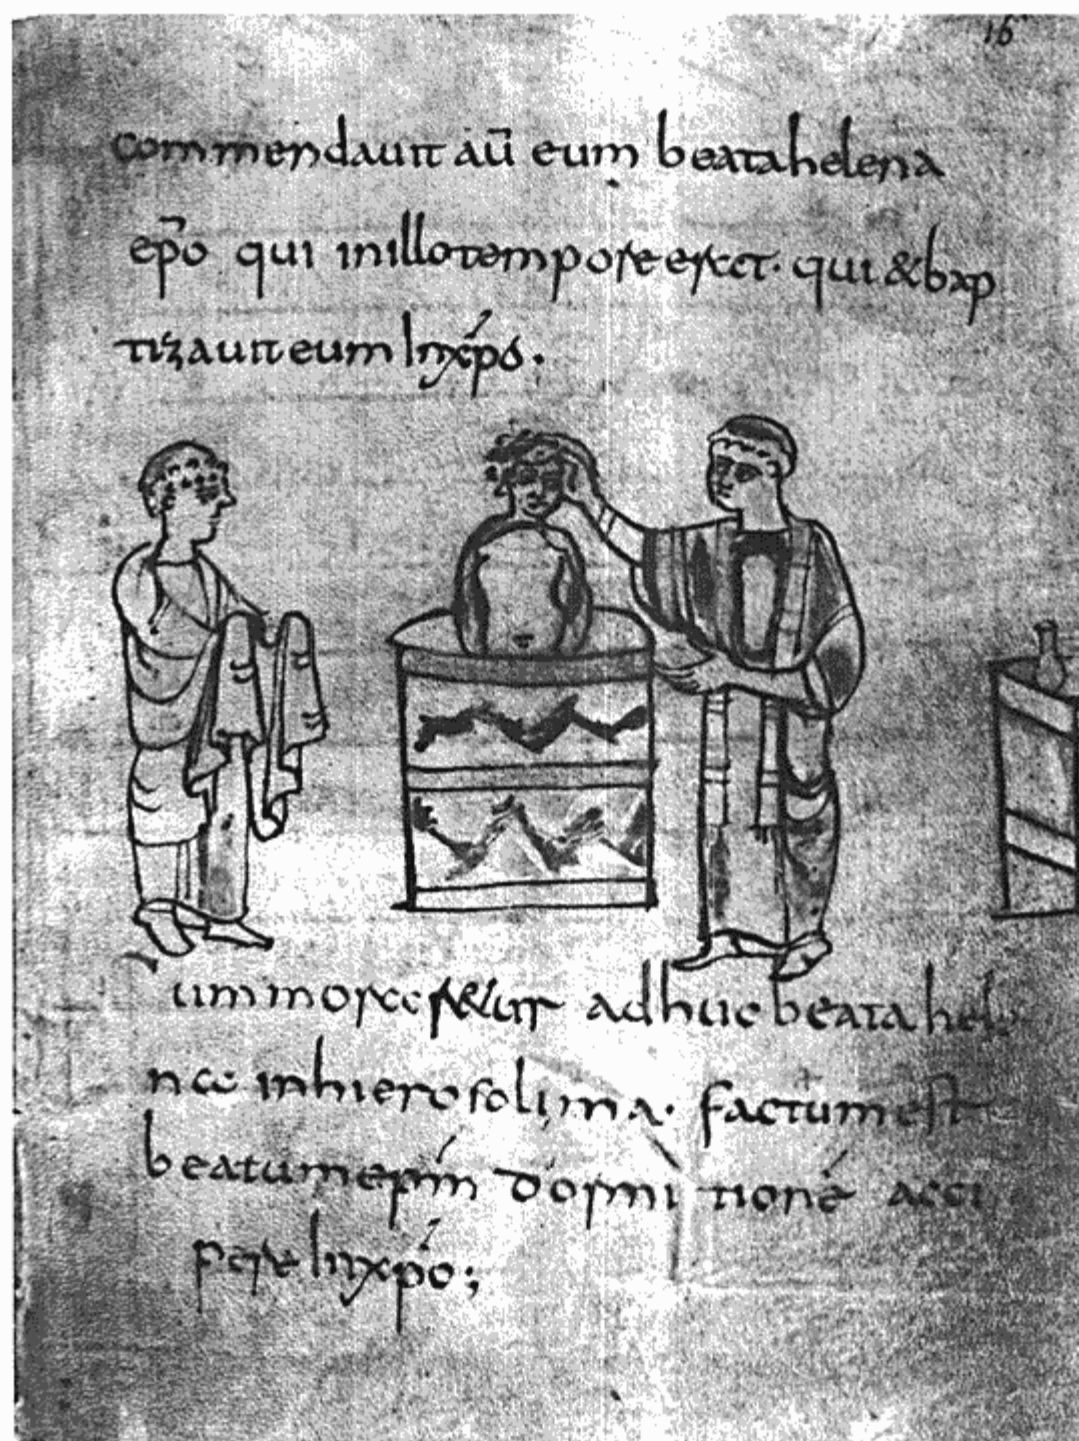 16
commendauit aū eum beata helena
ep̄o qui in illo tempore erat· qui & bap
tizauit eum In xp̄o·
um mor&ur adhuc beata hele
nae in hierosolima· factum est
beatum ep̄m dormitionē acci
pere In xp̄o;